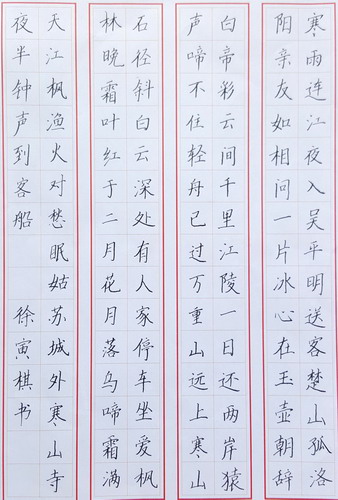 寒雨连江夜入吴平明送客楚山孤洛
阳亲友如相问一片冰心在玉壶朝辞
白帝彩云间千里江陵一日还两岸猿
声啼不住轻舟已过万重山远上寒山
石径斜白云深处有人家停车坐爱枫
林晚霜叶红于二月花月落乌啼霜满
天江枫渔火对愁眠姑苏城外寒山寺
夜半钟声到客船
徐寅棋书